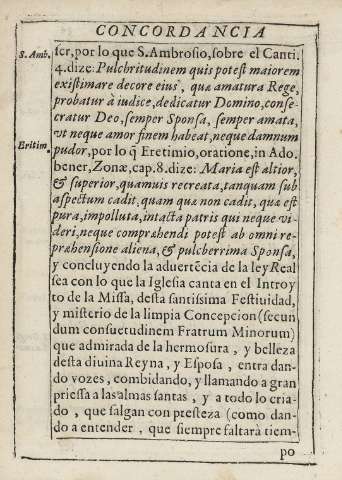 CONCORDANCIA
S. Amb.
ſer, por lo que S. Ambroſio, ſobre el Canti.
4. dize: Pulchritudinem quis poteſt maiorem
exiſtimare decore eius, quæ amatura Rege,
probatur à iudice, dedicatur Domino, conſe-
cratur Deo, ſemper Sponſa, ſemper amata,
vt neque amor finem habeat, neque damnum
Eritim.
pudor, por lo q̃ Eretimio, oratione, in Ado.
bener, Zonæ, cap. 8. dize: Maria est altior,
& ſuperior, quamuis recreata, tanquam ſub
aſpectum cadit, quam quæ non cadit, quæ eſt
pura, impolluta, intacta patris qui neque vi-
deri, neque compræhendi potest ab omni re-
præhensione aliena, & pulcherrima Sponſa,
y concluyendo la aduertẽcia de la ley Real
ſea con lo que la Igleſia canta en el Introy
to de la Miſſa, deſta ſantiſsima Feſtiuidad,
y miſterio de la limpia Concepcion (ſecun
dum conſuetudinem Fratrum Minorum)
que admirada de la hermoſura, y belleza
deſta diuina Reyna, y Eſpoſa, entra dan-
do vozes, combidando, y llamando a gran
prieſſa a las almas ſantas, y a todo lo cria-
do, que ſalgan con preſteza (como dan-
do a entender, que ſiempre faltarà tiem-
po